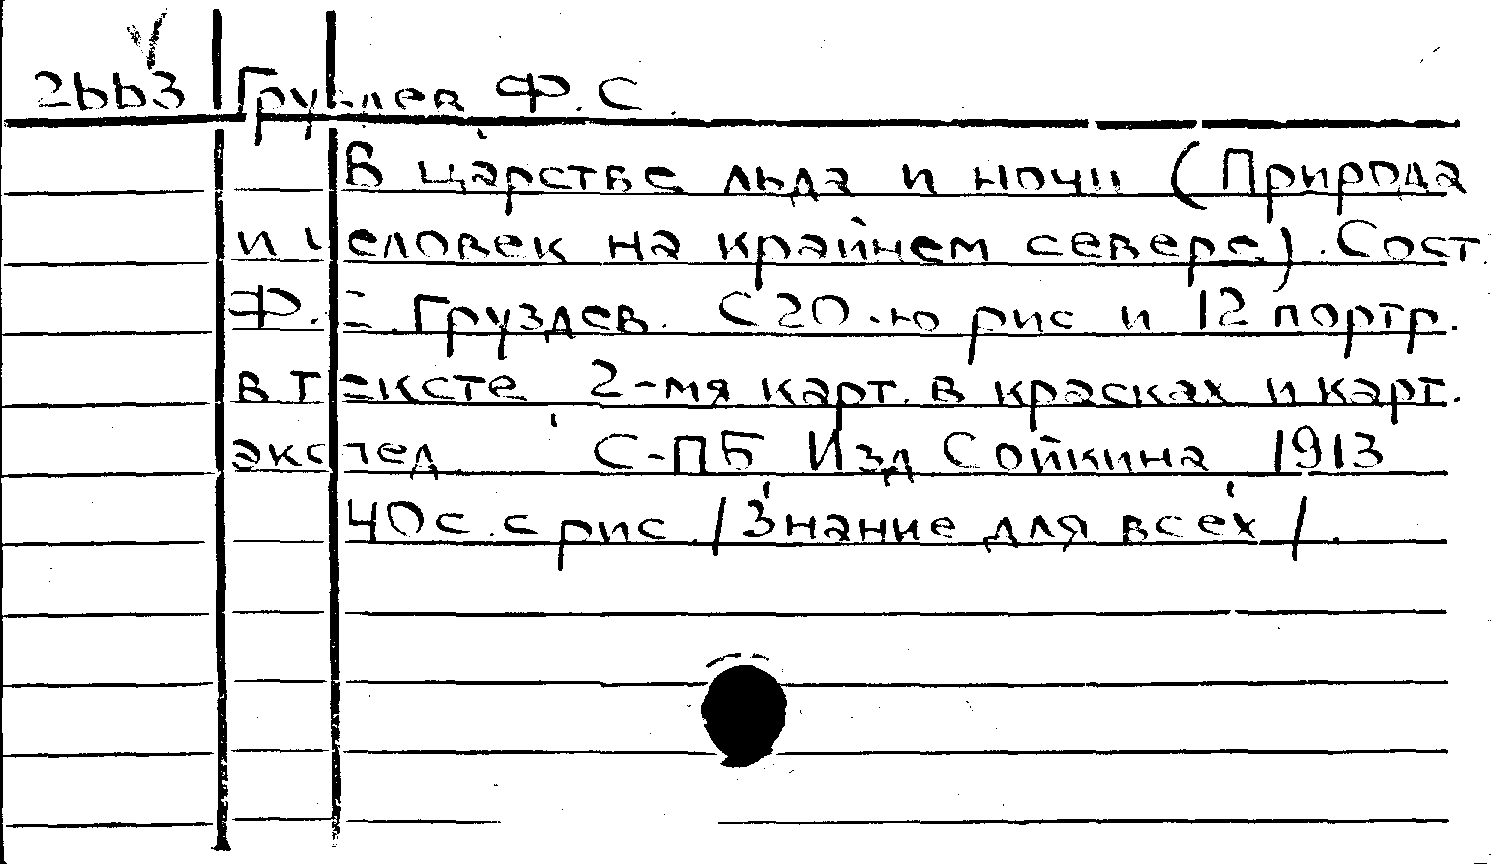 2663 Груздев Ф. С.
В царстве льда и ночи (Природа
и человек на крайнем севере). Сост.
Ф. С. Груздев. С 20-ю рис и 12 портр.
в тексте 2-мя карт. в красках и карт.
экспед С-ПБ Изд Сойкина 1913
40 с. с рис. /Знание для всех/.